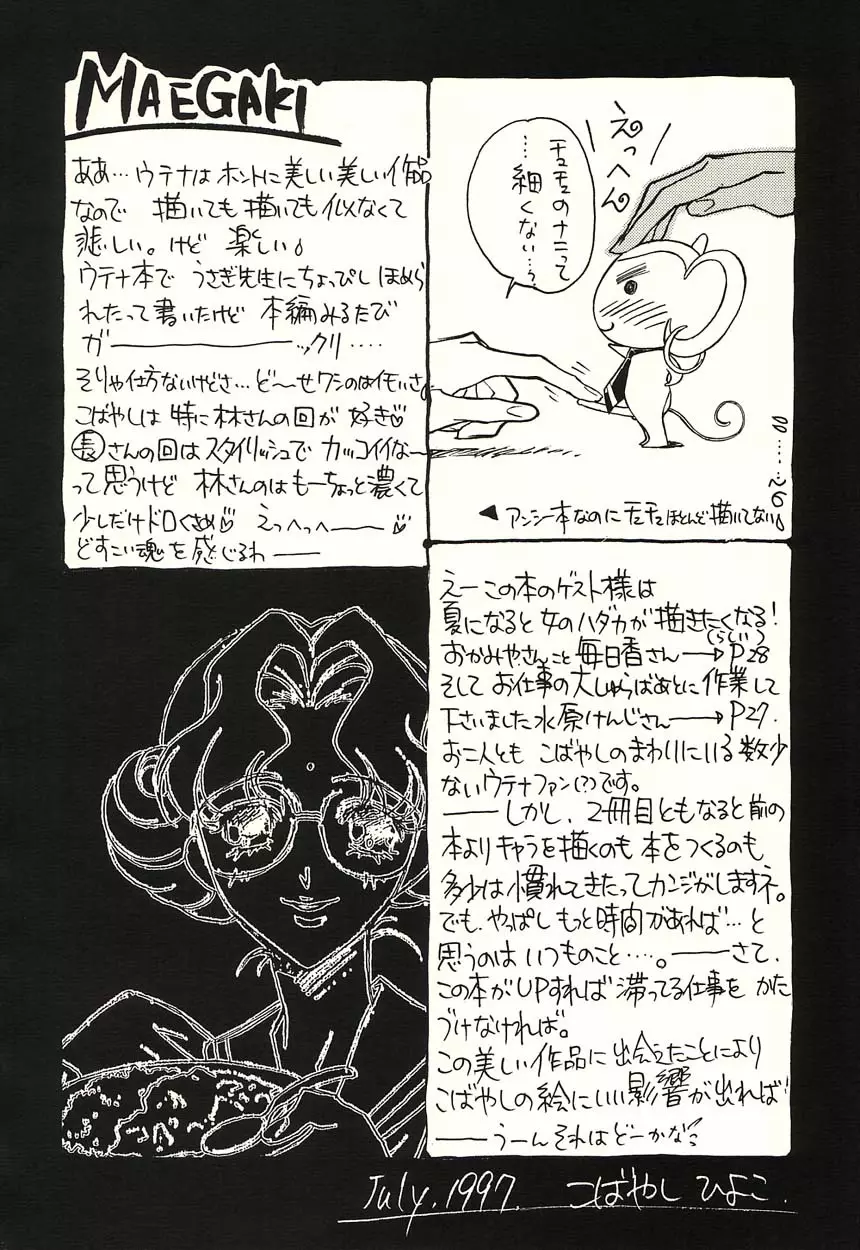 MAEGAKI
ああ…ウテナはホントに美しい美しい作品
なので 描いても描いても似なくて
悲しい。けど 楽しい♪
ウテナ本で うさぎ先生にちょっぴし ほめら
れたって書いたけど 本編みるたび
ガ――――ックリ‥‥
そりゃ仕方ないけどさ…ど〜せワシのはイモいさ。
こばやしは 特に林さんの回が 好き♡
長さんの回はスタイリッシュで カッコイイな〜
って思うけど 林さんのはもーちょっと濃くて
少しだけドロくさめ♡ えっへっへ――♡
どすこい魂を感じるわ――
えっへん
チュチュのナニって
…細くない…?
◀アンシー本なのにチュチュほとんど描いてない。
えー この本のゲスト様は
夏になると 女のハダカが描きたくなる!
おかみやさんこと 毎日香さん→P28
そして お仕事の大しゅらばあとに 作業して
下さいました水原けんじさん→P27.
お二人とも こばやしのまわりにいる数少
ないウテナファン(?)です。
――しかし、2冊目ともなると前の
本よりキャラを描くのも 本をつくるのも
多少は慣れてきたってカンジがしますネ。
でも、やっぱし もっと時間があれば…と
思うのは いつものこと‥‥。――さて、
この本がUPすれば 滞ってる仕事を かた
づけなければ。
この美しい作品に出会えたことにより
こばやしの絵にいい影響が出れば!
――うーん それはどーかな?
July.1997. こばやし ひよこ.